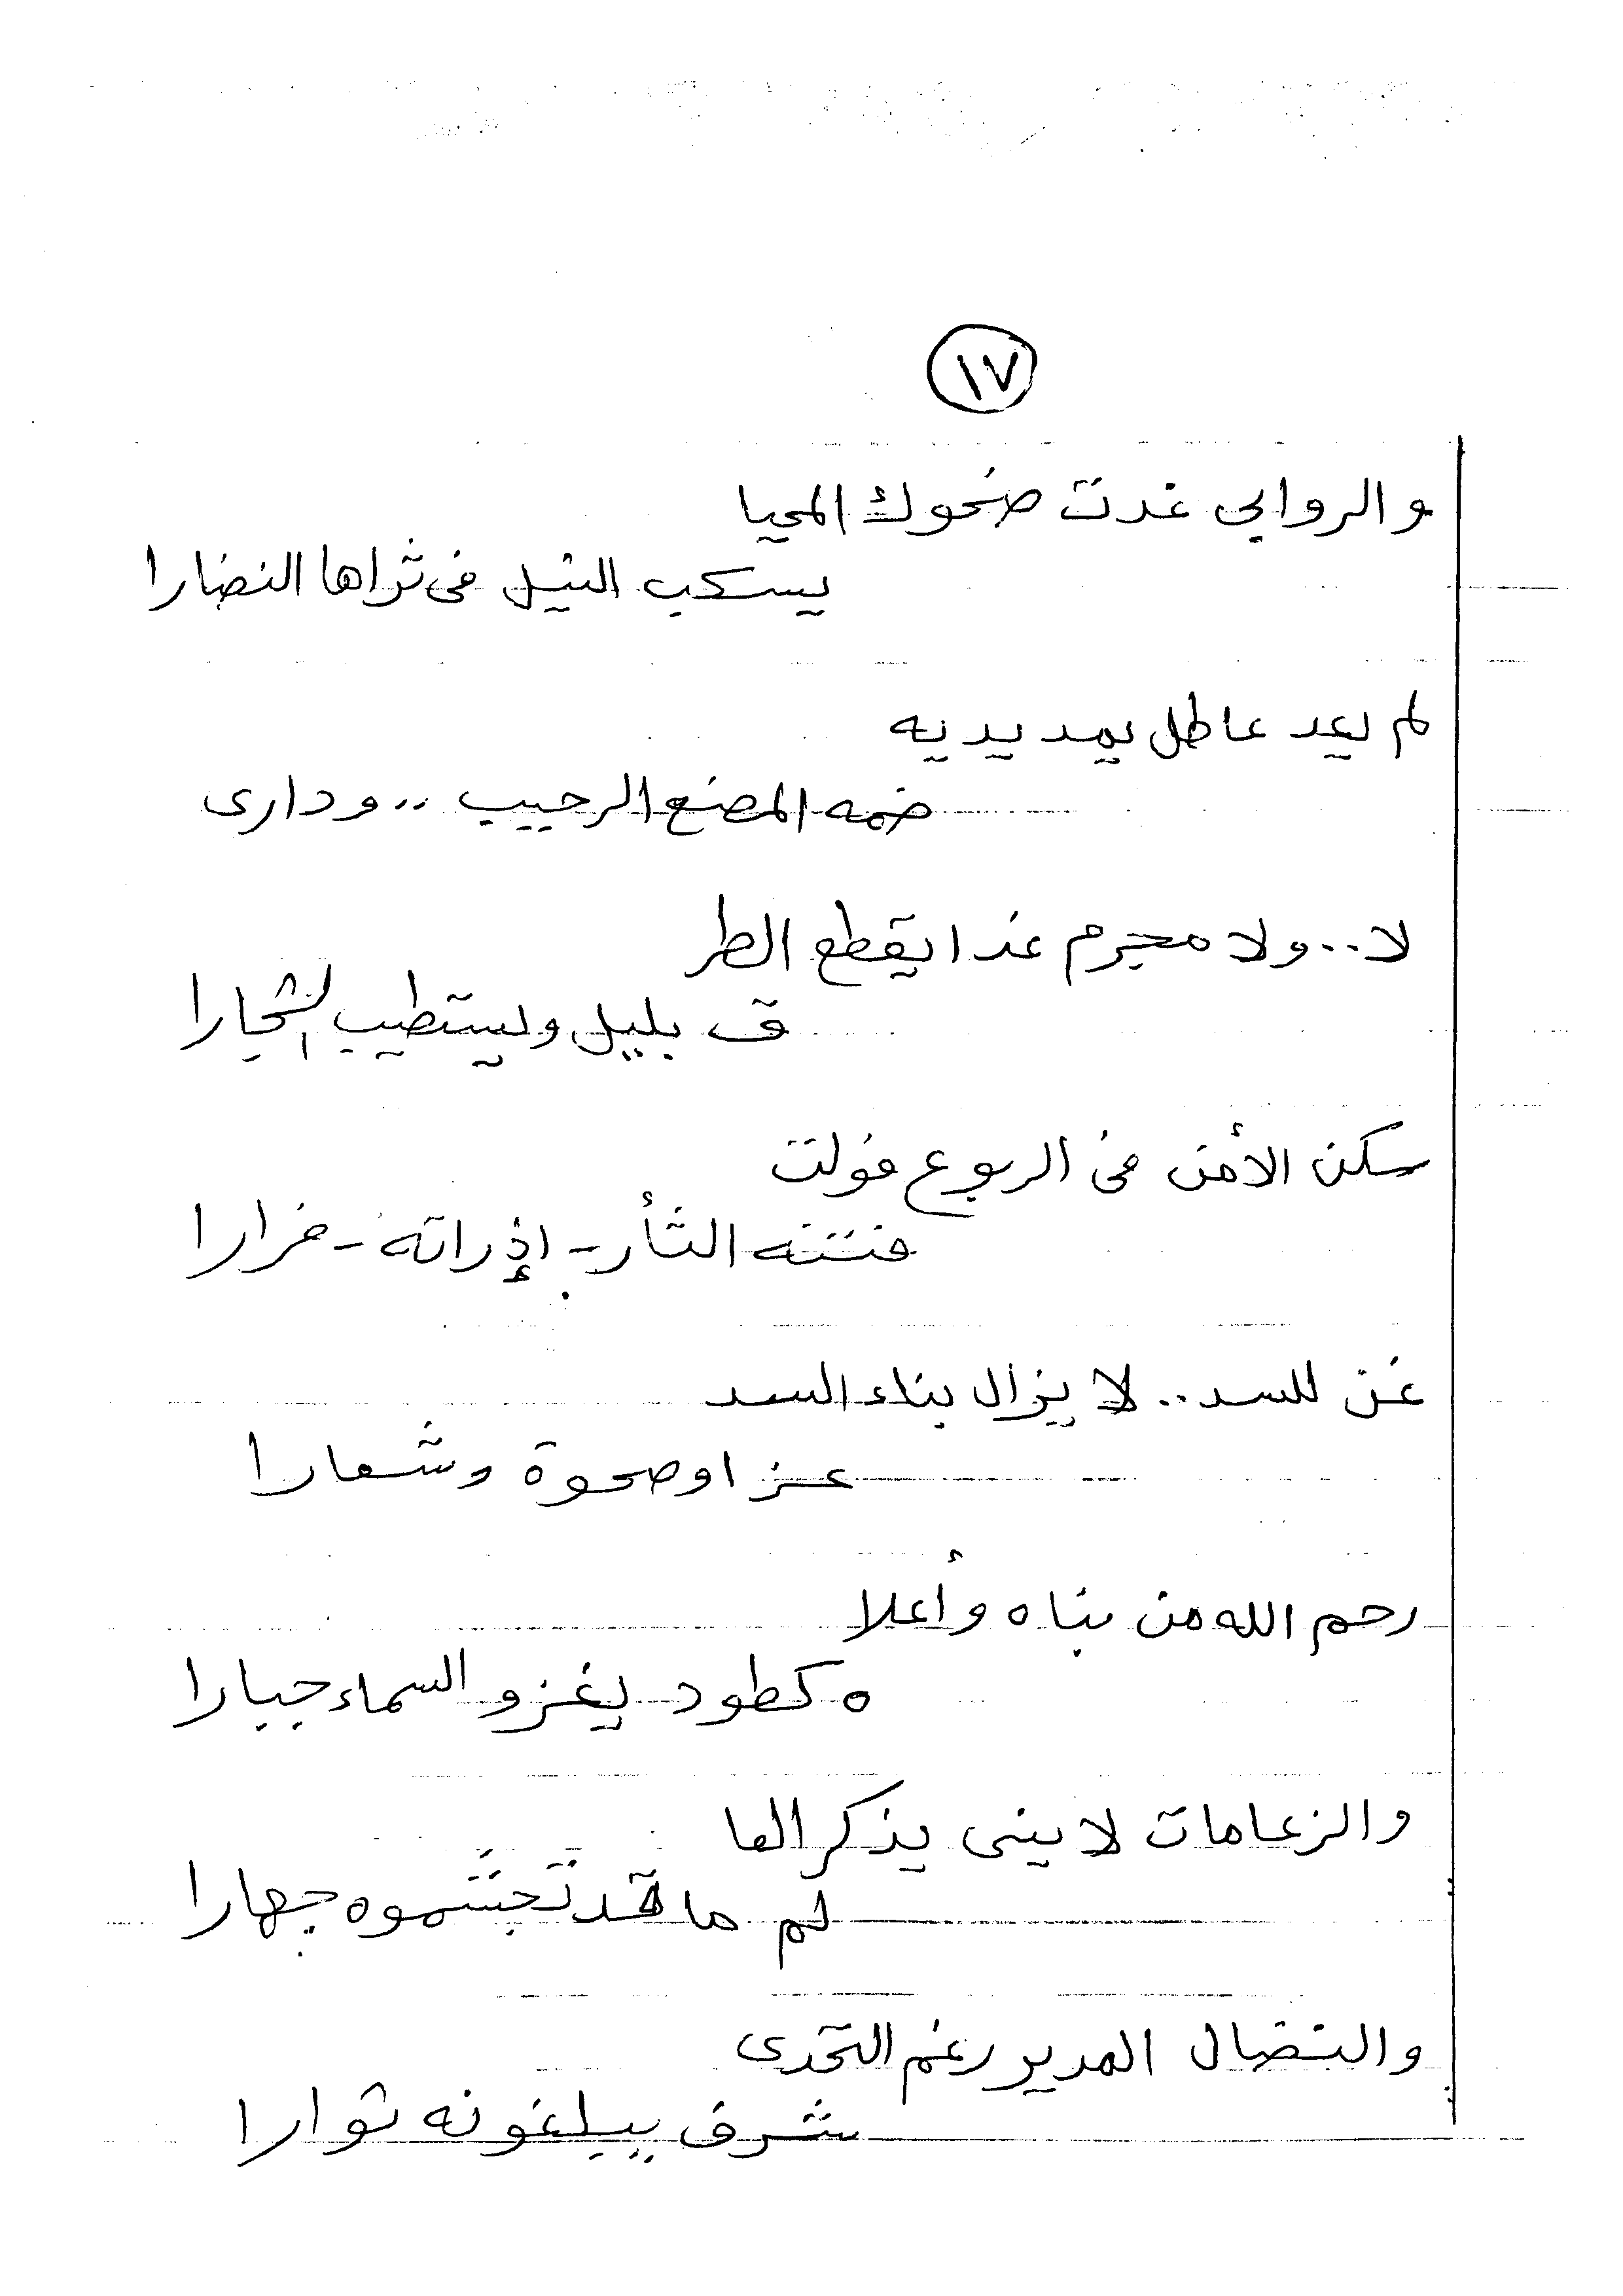 ١٧
والروابى غدت ضحوك المحيا
يسكب النيل فى ثراها النضارا
لم يعد عاطل يمد يديه
ضمه المصنع الرحيب .. ودارى
لا .. ولا مجرم غدا يقطع الطر
ق بليل ويستطيب الشجارا
سكن الأمن فى الربوع فولت
فتنة الثأر - إذ راته - فرارا
غن للسد .. لا يزال بناء السد
عزا وصحوة وشعارا
رحم الله من بناه وأعلا
ه كطود يغزو السماء جبارا
والزعامات لا ينى يذكر العا
لم ما قد تجشموه جهارا
والنضال المرير رغم التحدى
شرف يبلغونه ثوارا